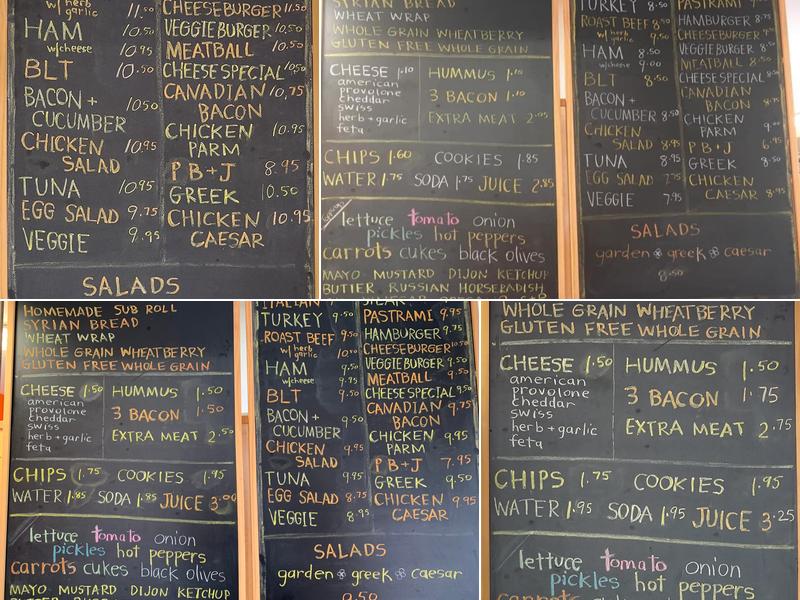 w/ herb garlic
HAM 10.50
w/cheese 10.95
BLT 10.50
BACON + CUCUMBER 10.50
CHICKEN SALAD 10.95
TUNA 10.95
EGG SALAD 9.75
VEGGIE 9.95
CHEESEBURGER 11.50
VEGGIE BURGER 10.50
MEATBALL 10.50
CHEESE SPECIAL 10.50
CANADIAN BACON 10.75
CHICKEN PARM 10.95
PB+J 8.95
GREEK 10.50
CHICKEN CAESAR 10.95
SALADS
SYRIAN BREAD
WHEAT WRAP
WHOLE GRAIN WHEATBERRY
GLUTEN FREE WHOLE GRAIN
CHEESE 1.10
american
provolone
cheddar
swiss
herb + garlic
feta
HUMMUS 1.10
3 BACON 1.10
EXTRA MEAT
CHIPS 1.60 COOKIES 1.85
WATER 1.75 SODA 1.75 JUICE 2.85
lettuce tomato onion
pickles hot peppers
carrots cukes black olives
MAYO MUSTARD DIJON KETCHUP
BUTTER RUSSIAN HORSERADISH
TURKEY 8.50
ROAST BEEF 8.50
w/ herb garlic 9.00
HAM 8.50
w/cheese 9.00
BLT 8.50
BACON + CUCUMBER 8.50
CHICKEN SALAD 8.95
TUNA 8.95
EGG SALAD 7.75
VEGGIE 7.95
PASTRAMI
HAMBURGER 8.75
CHEESEBURGER
VEGGIE BURGER 8.50
MEATBALL 8.50
CHEESE SPECIAL
CANADIAN BACON 8.75
CHICKEN PARM
PB+J 6.95
GREEK 8.50
CHICKEN CAESAR 8.95
SALADS
garden greek caesar
8.50
HOMEMADE SUB ROLL
SYRIAN BREAD
WHEAT WRAP
WHOLE GRAIN WHEATBERRY
GLUTEN FREE WHOLE GRAIN
CHEESE 1.50
american
provolone
cheddar
swiss
herb + garlic
feta
HUMMUS 1.50
3 BACON 1.50
EXTRA MEAT 2.50
CHIPS 1.75 COOKIES 1.95
WATER 1.85 SODA 1.85 JUICE 3.00
lettuce tomato onion
pickles hot peppers
carrots cukes black olives
MAYO MUSTARD DIJON KETCHUP
ITALIAN
TURKEY 9.50
ROAST BEEF 9.50
w/ herb garlic
HAM 9.50
w/cheese 9.95
BLT 9.50
BACON + CUCUMBER 9.50
CHICKEN SALAD 9.95
TUNA 9.95
EGG SALAD 8.75
VEGGIE 8.95
STEAK
PASTRAMI 9.95
HAMBURGER 9.75
CHEESEBURGER
VEGGIE BURGER 9.50
MEATBALL 9.50
CHEESE SPECIAL 9.50
CANADIAN BACON 9.75
CHICKEN PARM 9.95
PB+J 7.95
GREEK 9.50
CHICKEN CAESAR 9.95
SALADS
garden greek caesar
9.50
WHOLE GRAIN WHEATBERRY
GLUTEN FREE WHOLE GRAIN
CHEESE 1.50
american
provolone
cheddar
swiss
herb + garlic
feta
HUMMUS 1.50
3 BACON 1.75
EXTRA MEAT 2.75
CHIPS 1.75 COOKIES 1.95
WATER 1.95 SODA 1.95 JUICE 3.25
lettuce tomato onion
pickles hot peppers